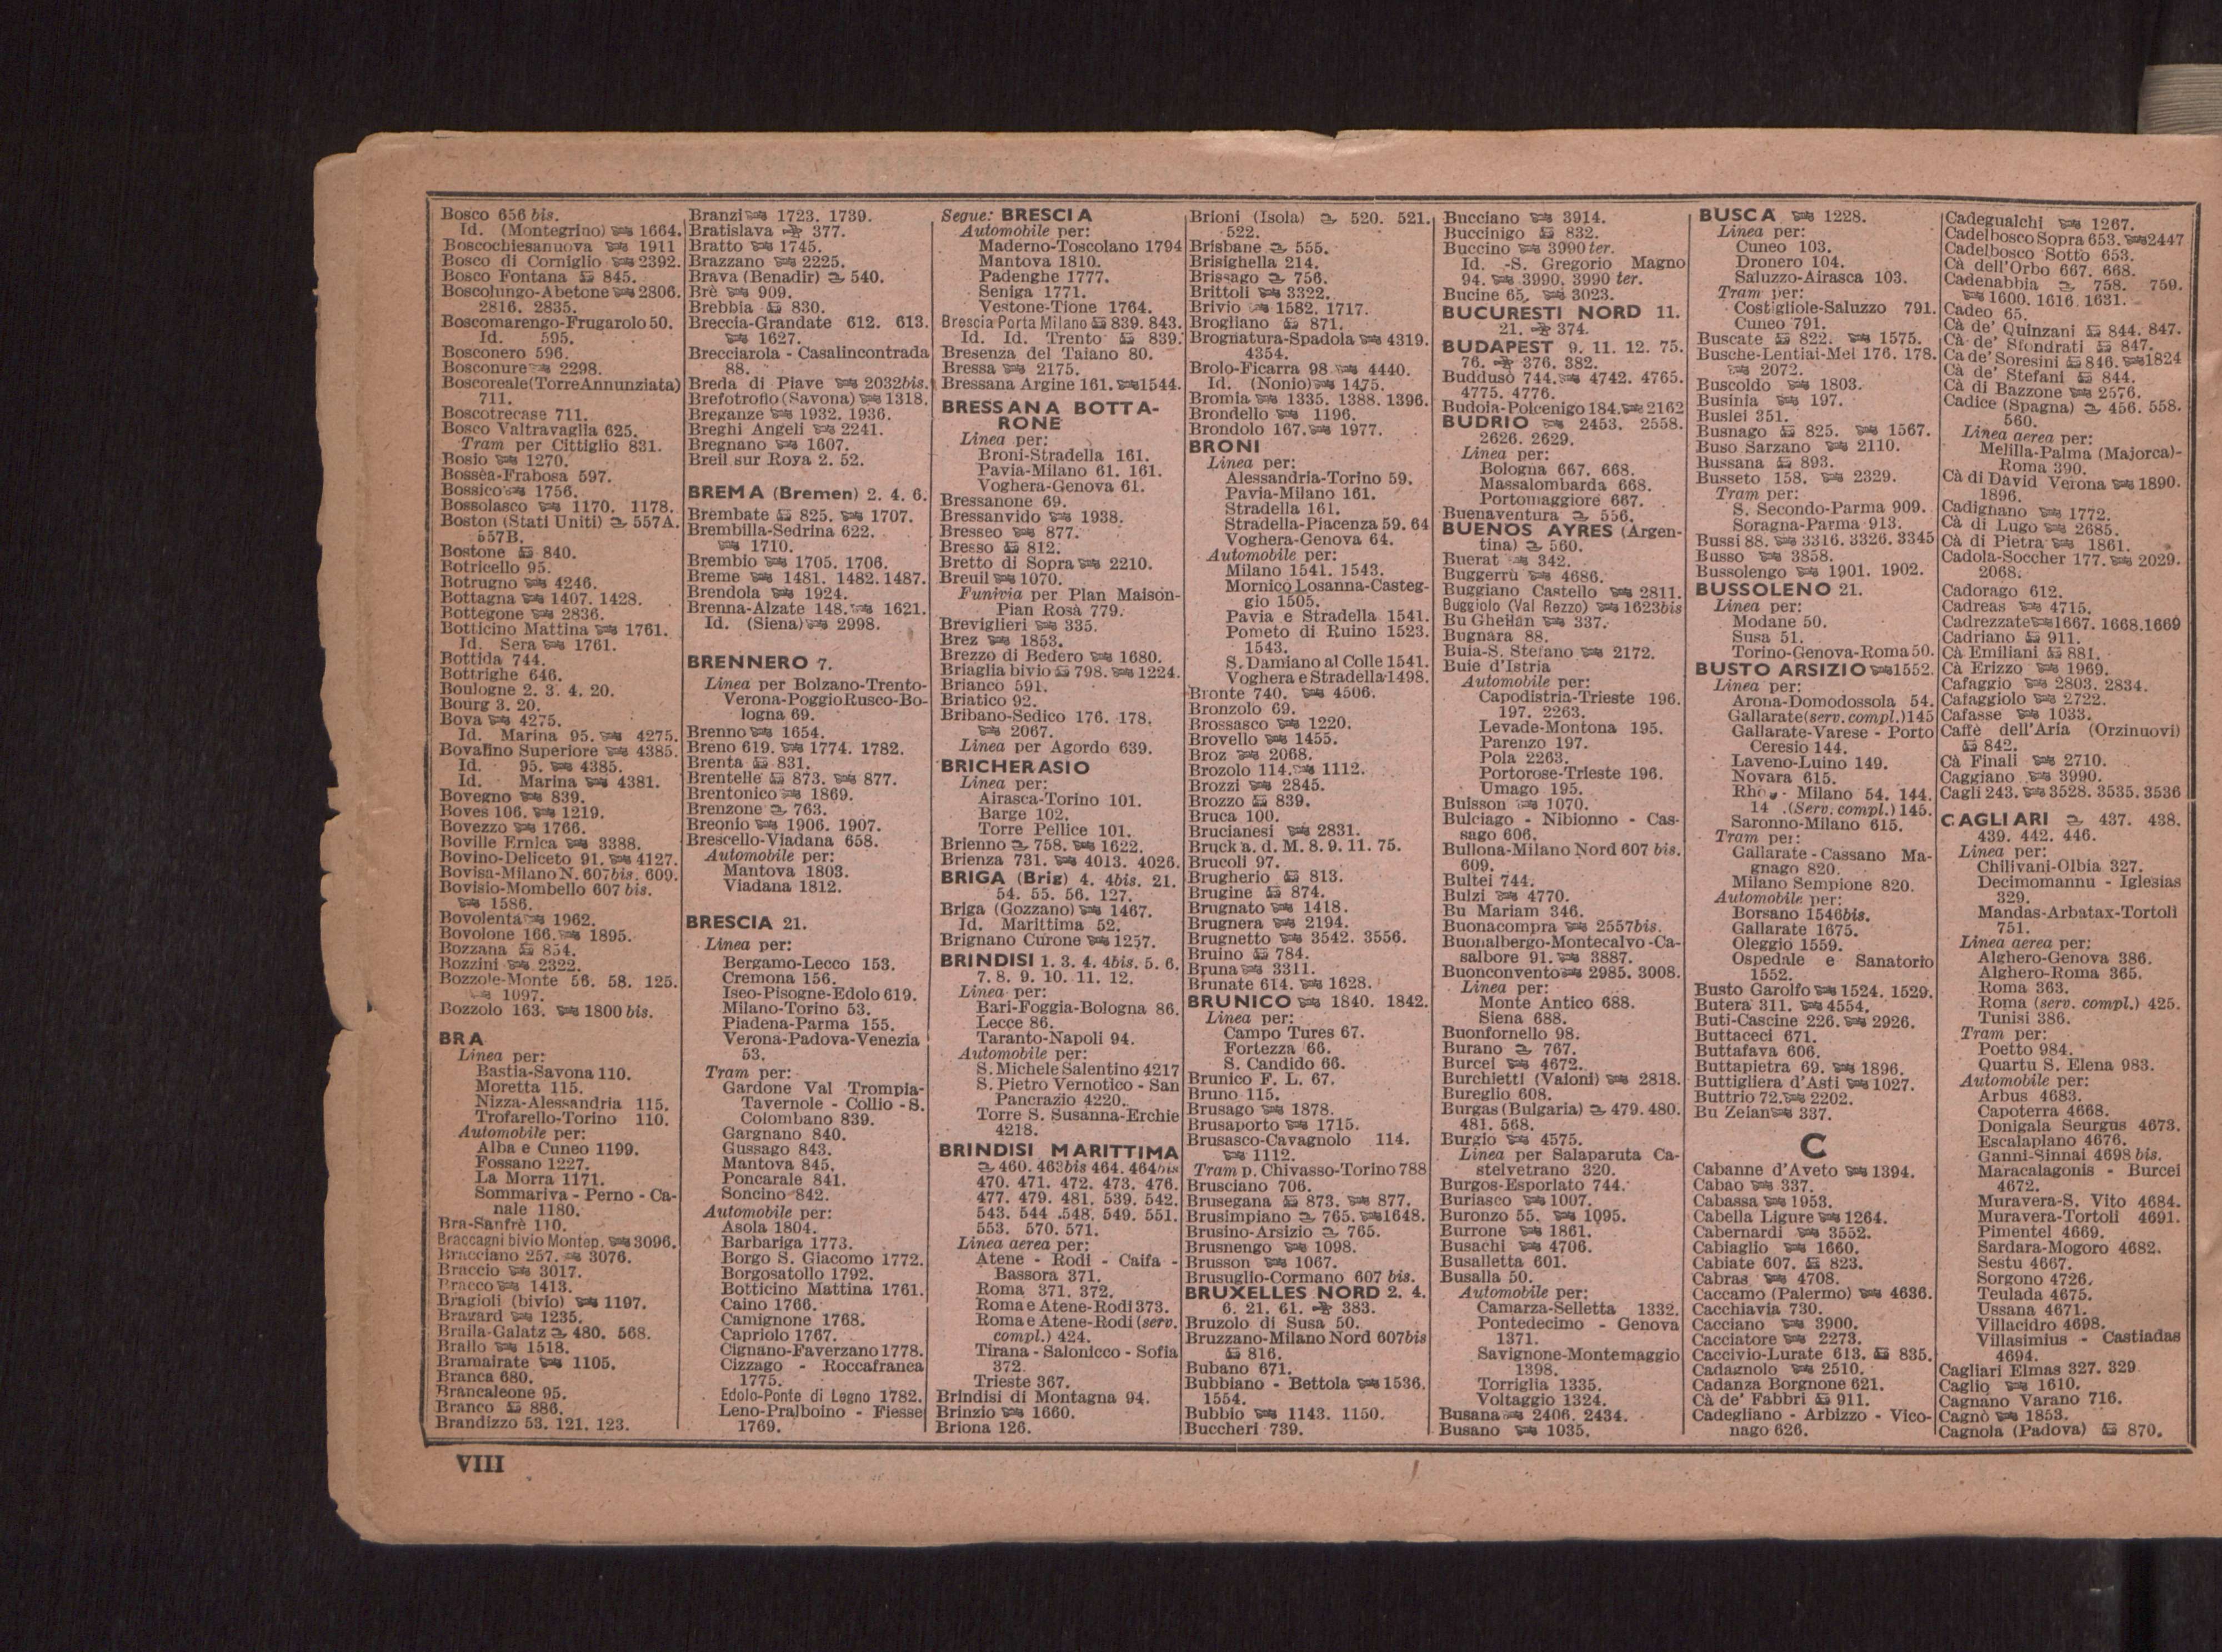 Bosco 656 bis.
Id. (Montegrino) 1664.
Boscochiesanuova 1911
Bosco di Corniglio 2392.
Bosco Fontana 845.
Boscolungo-Abetone 2806.
2816. 2835.
Boscomarengo-Frugarolo 50.
Id. 595.
Bosconero 596.
Bosconure 2298.
Boscoreale (Torre Annunziata)
711.
Boscotrecase 711.
Bosco Valtravaglia 625.
Tram per Cittiglio 831.
Bosio 1270.
Bossèa-Frabosa 597.
Bossico 1756.
Bossolasco 1170. 1178.
Boston (Stati Uniti) 557A.
557B.
Bostone 840.
Botricello 95.
Botrugno 4246.
Bottagna 1407. 1428.
Bottegone 2836.
Botticino Mattina 1761.
Id. Sera 1761.
Bottida 744.
Bottrighe 646.
Boulogne 2. 3. 4. 20.
Bourg 3. 20.
Bova 4275.
Id. Marina 95. 4275.
Bovalino Superiore 4385.
Id. 95. 4385.
Id. Marina 4381.
Bovegno 839.
Boves 106. 1219.
Bovezzo 1766.
Boville Ernica 3388.
Bovino-Deliceto 91. 4127.
Bovisa-Milano N. 607bis. 609.
Bovisio-Mombello 607 bis.
1586.
Bovolenta 1962.
Bovolone 166. 1895.
Bozzana 854.
Bozzini 2322.
Bozzole-Monte 56. 58. 125.
1097.
Bozzolo 163. 1800 bis.
BRA
Linea per:
Bastia-Savona 110.
Moretta 115.
Nizza-Alessandria 115.
Trofarello-Torino 110.
Automobile per:
Alba e Cuneo 1199.
Fossano 1227.
La Morra 1171.
Sommariva - Perno - Ca-
nale 1180.
Bra-Sanfrè 110.
Braccagni bivio Montep. 3096.
Bracciano 257. 3076.
Braccio 3017.
Bracco 1413.
Bragioli (bivio) 1197.
Bragard 1235.
Braila-Galatz 480. 568.
Brallo 1518.
Bramairate 1105.
Branca 680.
Brancaleone 95.
Branco 886.
Brandizzo 53. 121. 123.
Branzi 1723. 1739.
Bratislava 377.
Bratto 1745.
Brazzano 2225.
Brava (Benadir) 540.
Brè 909.
Brebbia 830.
Breccia-Grandate 612. 613.
1627.
Brecciarola - Casalincontrada
88.
Breda di Piave 2032bis.
Brefotrofio (Savona) 1318.
Breganze 1932. 1936.
Breghi Angeli 2241.
Bregnano 1607.
Breil sur Roya 2. 52.
BREMA (Bremen) 2. 4. 6.
Brembate 825. 1707.
Brembilla-Sedrina 622.
1710.
Brembio 1705. 1706.
Breme 1481. 1482. 1487.
Brendola 1924.
Brenna-Alzate 148. 1621.
Id. (Siena) 2998.
BRENNERO 7.
Linea per Bolzano-Trento-
Verona-Poggio Rusco-Bo-
logna 69.
Brenno 1654.
Breno 619. 1774. 1782.
Brenta 831.
Brentelle 873. 877.
Brentonico 1869.
Brenzone 763.
Breonio 1906. 1907.
Brescello-Viadana 658.
Automobile per:
Mantova 1803.
Viadana 1812.
BRESCIA 21.
Linea per:
Bergamo-Lecco 153.
Cremona 156.
Iseo-Pisogne-Edolo 619.
Milano-Torino 53.
Piadena-Parma 155.
Verona-Padova-Venezia
53.
Tram per:
Gardone Val Trompia-
Tavernole - Collio - S.
Colombano 839.
Gargnano 840.
Gussago 843.
Mantova 845.
Poncarale 841.
Soncino 842.
Automobile per:
Asola 1804.
Barbariga 1773.
Borgo S. Giacomo 1772.
Borgosatollo 1792.
Botticino Mattina 1761.
Caino 1766.
Camignone 1768.
Capriolo 1767.
Cignano-Faverzano 1778.
Cizzago - Roccafranca
1775.
Edolo-Ponte di Legno 1782.
Leno-Pralboino - Fiesse
1769.
Segue: BRESCIA
Automobile per:
Maderno-Toscolano 1794
Mantova 1810.
Padenghe 1777.
Seniga 1771.
Vestone-Tione 1764.
Brescia Porta Milano 839. 843.
Id. Id. Trento 839.
Bresenza del Taiano 80.
Bressa 2175.
Bressana Argine 161. 1544.
BRESSANA BOTTA-
RONE
Linea per:
Broni-Stradella 161.
Pavia-Milano 61. 161.
Voghera-Genova 61.
Bressanone 69.
Bressanvido 1938.
Bresseo 877.
Bresso 812.
Bretto di Sopra 2210.
Breuil 1070.
Funivia per Plan Maison-
Pian Rosà 779.
Breviglieri 335.
Brez 1853.
Brezzo di Bedero 1680.
Briaglia bivio 798. 1224.
Brianco 591.
Briatico 92.
Bribano-Sedico 176. 178.
2067.
Linea per Agordo 639.
BRICHERASIO
Linea per:
Airasca-Torino 101.
Barge 102.
Torre Pellice 101.
Brienno 758. 1622.
Brienza 731. 4013. 4026.
BRIGA (Brig) 4. 4bis. 21.
54. 55. 56. 127.
Briga (Gozzano) 1467.
Id. Marittima 52.
Brignano Curone 1257.
BRINDISI 1. 3. 4. 4bis. 5. 6.
7. 8. 9. 10. 11. 12.
Linea per:
Bari-Foggia-Bologna 86.
Lecce 86.
Taranto-Napoli 94.
Automobile per:
S. Michele Salentino 4217
S. Pietro Vernotico - San
Pancrazio 4220.
Torre S. Susanna-Erchie
4218.
BRINDISI MARITTIMA
460. 463bis 464. 464bis
470. 471. 472. 473. 476.
477. 479. 481. 539. 542.
543. 544 .548. 549. 551.
553. 570. 571.
Linea aerea per:
Atene - Rodi - Caifa -
Bassora 371.
Roma 371. 372.
Roma e Atene-Rodi 373.
Roma e Atene-Rodi (serv.
compl.) 424.
Tirana - Salonicco - Sofia
372.
Trieste 367.
Brindisi di Montagna 94.
Brinzio 1660.
Briona 126.
Brioni (Isola) 520. 521.
522.
Brisbane 555.
Brisighella 214.
Brissago 756.
Brittoli 3322.
Brivio 1582. 1717.
Brogliano 871.
Brognatura-Spadola 4319.
4354.
Brolo-Ficarra 98 4440.
Id. (Nonio) 1475.
Bromia 1335. 1388. 1396.
Brondello 1196.
Brondolo 167. 1977.
BRONI
Linea per:
Alessandria-Torino 59.
Pavia-Milano 161.
Stradella 161.
Stradella-Piacenza 59. 64
Voghera-Genova 64.
Automobile per:
Milano 1541. 1543.
Mornico Losanna-Casteg-
gio 1505.
Pavia e Stradella 1541.
Pometo di Ruino 1523.
1543.
S. Damiano al Colle 1541.
Voghera e Stradella 1498.
Bronte 740. 4506.
Bronzolo 69.
Brossasco 1220.
Brovello 1455.
Broz 2068.
Brozolo 114. 1112.
Brozzi 2845.
Brozzo 839.
Bruca 100.
Brucianesi 2831.
Bruck a. d. M. 8. 9. 11. 75.
Brucoli 97.
Brugherio 813.
Brugine 874.
Brugnato 1418.
Brugnera 2194.
Brugnetto 3542. 3556.
Bruino 784.
Bruna 3311.
Brunate 614. 1628.
BRUNICO 1840. 1842.
Linea per:
Campo Tures 67.
Fortezza 66.
S. Candido 66.
Brunico F. L. 67.
Bruno 115.
Brusago 1878.
Brusaporto 1715.
Brusasco-Cavagnolo 114.
1112.
Tram p. Chivasso-Torino 788
Brusciano 706.
Brusegana 873. 877.
Brusimpiano 765. 1648.
Brusino-Arsizio 765.
Brusnengo 1098.
Brusson 1067.
Brusuglio-Cormano 607 bis.
BRUXELLES NORD 2. 4.
6. 21. 61. 383.
Bruzolo di Susa 50.
Bruzzano-Milano Nord 607bis
816.
Bubano 671.
Bubbiano - Bettola 1536.
1554.
Bubbio 1143. 1150.
Buccheri 739.
Bucciano 3914.
Buccinigo 832.
Buccino 3990 ter.
Id. -S. Gregorio Magno
94. 3990. 3990 ter.
Bucine 65. 3023.
BUCURESTI NORD 11.
21. 374.
BUDAPEST 9. 11. 12. 75.
76. 376. 382.
Buddusò 744. 4742. 4765.
4775. 4776.
Budoia-Polcenigo 184. 2162
BUDRIO 2453. 2558.
2626. 2629.
Linea per:
Bologna 667. 668.
Massalombarda 668.
Portomaggiore 667.
Buenaventura 556.
BUENOS AYRES (Argen-
tina) 560.
Buerat 342.
Buggerrù 4686.
Buggiano Castello 2811.
Buggiolo (Val Rezzo) 1623bis
Bu Gheilan 337.
Bugnara 88.
Buia-S. Stefano 2172.
Buie d'Istria
Automobile per:
Capodistria-Trieste 196.
197. 2263.
Levade-Montona 195.
Parenzo 197.
Pola 2263.
Portorose-Trieste 196.
Umago 195.
Buisson 1070.
Bulciago - Nibionno - Cas-
sago 606.
Bullona-Milano Nord 607 bis.
609.
Bultei 744.
Bulzi 4770.
Bu Mariam 346.
Buonacompra 2557bis.
Buonalbergo-Montecalvo -Ca-
salbore 91. 3887.
Buonconvento 2985. 3008.
Linea per:
Monte Antico 688.
Siena 688.
Buonfornello 98.
Burano 767.
Burcei 4672.
Burchietti (Vaioni) 2818.
Bureglio 608.
Burgas (Bulgaria) 479. 480.
481. 568.
Burgio 4575.
Linea per Salaparuta Ca-
stelvetrano 320.
Burgos-Esporlato 744.
Buriasco 1007.
Buronzo 55. 1095.
Burrone 1861.
Busachi 4706.
Busalletta 601.
Busalla 50.
Automobile per:
Camarza-Selletta 1332.
Pontedecimo - Genova
1371.
Savignone-Montemaggio
1398.
Torriglia 1335.
Voltaggio 1324.
Busana 2406. 2434.
Busano 1035.
BUSCA 1228.
Linea per:
Cuneo 103.
Dronero 104.
Saluzzo-Airasca 103.
Tram per:
Costigliole-Saluzzo 791.
Cuneo 791.
Buscate 822. 1575.
Busche-Lentiai-Mel 176. 178.
2072.
Buscoldo 1803.
Businia 197.
Buslei 351.
Busnago 825. 1567.
Buso Sarzano 2110.
Bussana 893.
Busseto 158. 2329.
Tram per:
S. Secondo-Parma 909.
Soragna-Parma 913.
Bussi 88. 3316. 3326. 3345
Busso 3858.
Bussolengo 1901. 1902.
BUSSOLENO 21.
Linea per:
Modane 50.
Susa 51.
Torino-Genova-Roma 50.
BUSTO ARSIZIO 1552.
Linea per:
Arona-Domodossola 54.
Gallarate (serv. compl.) 145
Gallarate-Varese - Porto
Ceresio 144.
Laveno-Luino 149.
Novara 615.
Rho - Milano 54. 144.
14 .(Serv. compl.) 145.
Saronno-Milano 615.
Tram per:
Gallarate - Cassano Ma-
gnago 820.
Milano Sempione 820.
Automobile per:
Borsano 1546bis.
Gallarate 1675.
Oleggio 1559.
Ospedale e Sanatorio
1552.
Busto Garolfo 1524. 1529.
Butera 311. 4554.
Buti-Cascine 226. 2926.
Buttaceci 671.
Buttafava 606.
Buttapietra 69. 1896.
Buttigliera d'Asti 1027.
Buttrio 72. 2202.
Bu Zeian 337.
C
Cabanne d'Aveto 1394.
Cabao 337.
Cabassa 1953.
Cabella Ligure 1264.
Cabernardi 3552.
Cabiaglio 1660.
Cabiate 607. 823.
Cabras 4708.
Caccamo (Palermo) 4636.
Cacchiavia 730.
Cacciano 3900.
Cacciatore 2273.
Caccivio-Lurate 613. 835.
Cadagnolo 2510.
Cadanza Borgnone 621.
Cà de' Fabbri 911.
Cadegliano - Arbizzo - Vico-
nago 626.
Cadegualchi 1267.
Cadelbosco Sopra 653. 2447
Cadelbosco Sotto 653.
Cà dell'Orbo 667. 668.
Cadenabbia 758. 759.
1600. 1616. 1631.
Cadeo 65.
Cà de' Quinzani 844. 847.
Cà de' Sfondrati 847.
Ca de' Soresini 846. 1824
Cà de' Stefani 844.
Cà di Bazzone 2576.
Cadice (Spagna) 456. 558.
560.
Linea aerea per:
Melilla-Palma (Majorca)-
Roma 390.
Cà di David Verona 1890.
1896.
Cadignano 1772.
Cà di Lugo 2685.
Cà di Pietra 1861.
Cadola-Soccher 177. 2029.
2068.
Cadorago 612.
Cadreas 4715.
Cadrezzate 1667. 1668.1669
Cadriano 911.
Cà Emiliani 881.
Cà Erizzo 1969.
Cafaggio 2803. 2834.
Cafaggiolo 2722.
Cafasse 1033.
Caffè dell'Aria (Orzinuovi)
842.
Cà Finali 2710.
Caggiano 3990.
Cagli 243. 3528. 3535. 3536
CAGLIARI 437. 438.
439. 442. 446.
Linea per:
Chilivani-Olbia 327.
Decimomannu - Iglesias
329.
Mandas-Arbatax-Tortolì
751.
Linea aerea per:
Alghero-Genova 386.
Alghero-Roma 365.
Roma 363.
Roma (serv. compl.) 425.
Tunisi 386.
Tram per:
Poetto 984.
Quartu S. Elena 983.
Automobile per:
Arbus 4683.
Capoterra 4668.
Donigala Seurgus 4673.
Escalaplano 4676.
Ganni-Sinnai 4698 bis.
Maracalagonis - Burcei
4672.
Muravera-S. Vito 4684.
Muravera-Tortolì 4691.
Pimentel 4669.
Sardara-Mogoro 4682.
Sestu 4667.
Sorgono 4726.
Teulada 4675.
Ussana 4671.
Villacidro 4698.
Villasimius - Castiadas
4694.
Cagliari Elmas 327. 329
Caglio 1610.
Cagnano Varano 716.
Cagnò 1853.
Cagnola (Padova) 870.
VIII